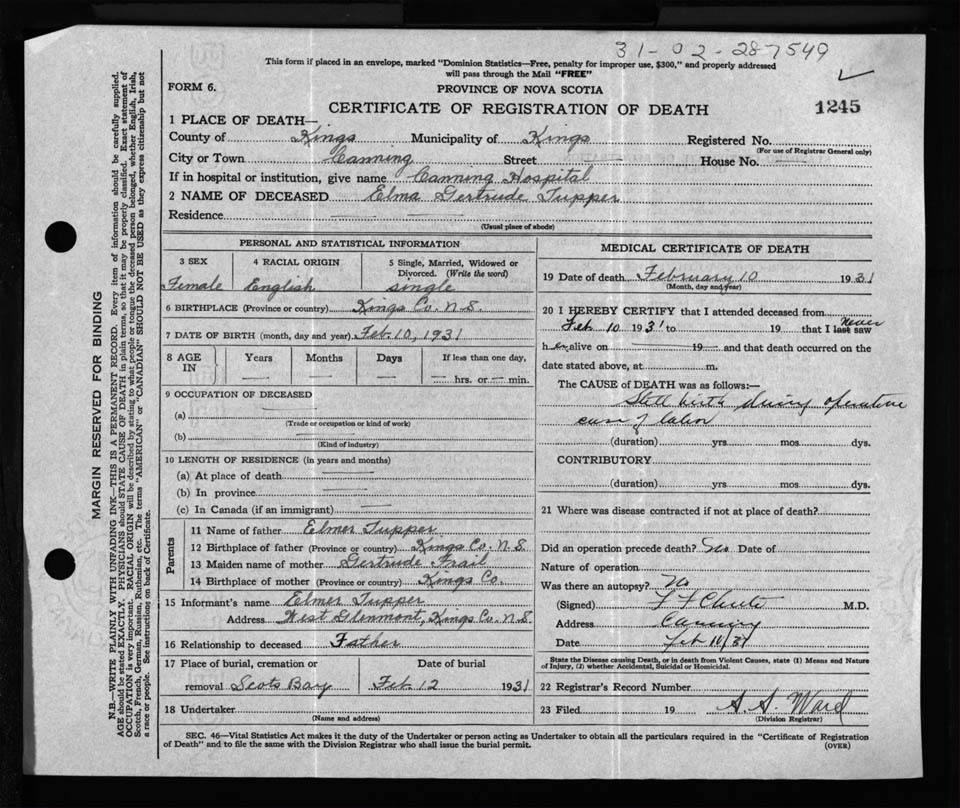 31-02-287549
This form if placed in an envelope, marked "Dominion Statistics—Free, penalty for improper use, $300," and properly addressed
will pass through the Mail "FREE"
FORM 6.
PROVINCE OF NOVA SCOTIA
CERTIFICATE OF REGISTRATION OF DEATH
1245
1 PLACE OF DEATH—
County of Kings Municipality of Kings Registered No.
(For use of Registrar General only)
City or Town Canning Street — House No. —
If in hospital or institution, give name Canning Hospital
2 NAME OF DECEASED Elma Gertrude Tupper
Residence — —
(Usual place of abode)
PERSONAL AND STATISTICAL INFORMATION
3 SEX 4 RACIAL ORIGIN 5 Single, Married, Widowed or
Divorced. (Write the word)
Female English single
6 BIRTHPLACE (Province or country) Kings Co. N.S.
7 DATE OF BIRTH (month, day and year) Feb. 10, 1931
8 AGE IN Years Months Days If less than one day,
— — — — hrs. or — min.
9 OCCUPATION OF DECEASED
(a) —
(Trade or occupation or kind of work)
(b) —
(Kind of industry)
10 LENGTH OF RESIDENCE (in years and months)
(a) At place of death —
(b) In province —
(c) In Canada (if an immigrant) —
Parents
11 Name of father Elmer Tupper
12 Birthplace of father (Province or country) Kings Co. N.S.
13 Maiden name of mother Gertrude
14 Birthplace of mother (Province or country) Kings Co.
15 Informant's name Elmer Tupper
Address West Glenmont, Kings Co. N.S.
16 Relationship to deceased Father
17 Place of burial, cremation or Date of burial
removal Scots Bay Feb. 12 1931
18 Undertaker
(Name and address)
MEDICAL CERTIFICATE OF DEATH
19 Date of death February 10 1931
(Month, day and year)
20 I HEREBY CERTIFY that I attended deceased from
Feb 10 1931 to 19 that I last saw
never
h er alive on 19 and that death occurred on the
date stated above, at m.
The CAUSE OF DEATH was as follows:—
Still birth during operative
of labor
(duration) yrs mos dys.
CONTRIBUTORY
(duration) yrs mos dys.
21 Where was disease contracted if not at place of death?
Did an operation precede death? No Date of
Nature of operation
Was there an autopsy? No
(Signed) F F Chute M.D.
Address Canning
Date Feb 11/31
State the Disease causing Death, or in death from Violent Causes, state (1) Means and Nature
of Injury, (2) whether Accidental, Suicidal or Homicidal.
22 Registrar's Record Number
23 Filed 19 S. S. Ward
(Division Registrar)
SEC. 46—Vital Statistics Act makes it the duty of the Undertaker or person acting as Undertaker to obtain all the particulars required in the "Certificate of Registration
of Death" and to file the same with the Division Registrar who shall issue the burial permit.
(OVER)
MARGIN RESERVED FOR BINDING
N.B.—WRITE PLAINLY WITH UNFADING INK—THIS IS A PERMANENT RECORD. Every item of information should be carefully supplied.
AGE should be stated EXACTLY. PHYSICIANS should STATE CAUSE OF DEATH in plain terms, so that it may be properly classified. Exact statement of
OCCUPATION is very important. RACIAL ORIGIN will be described by stating to what people or tongue the deceased person belonged, whether English, Irish,
Scotch, French, German, Russian, Ruthenian, etc. The terms "AMERICAN" or "CANADIAN" SHOULD NOT BE USED as they express citizenship but not
a race or people. See instructions on back of Certificate.